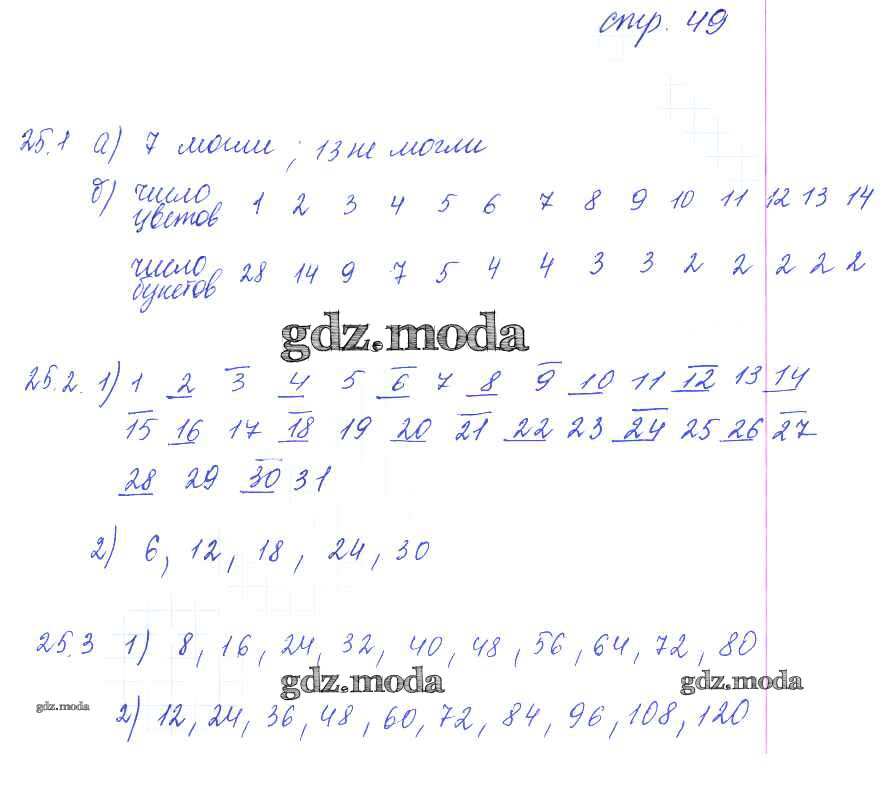 стр. 49
25.1 а) 7 могли ; 13 не могли
б) число цветов 1 2 3 4 5 6 7 8 9 10 11 12 13 14
число букетов 28 14 9 7 5 4 4 3 3 2 2 2 2 2
gdz.moda
25.2. 1) 1 2 3 4 5 6 7 8 9 10 11 12 13 14
15 16 17 18 19 20 21 22 23 24 25 26 27
28 29 30 31
2) 6, 12, 18, 24, 30
25.3 1) 8, 16, 24, 32, 40, 48, 56, 64, 72, 80
gdz.moda gdz.moda
gdz.moda
2) 12, 24, 36, 48, 60, 72, 84, 96, 108, 120